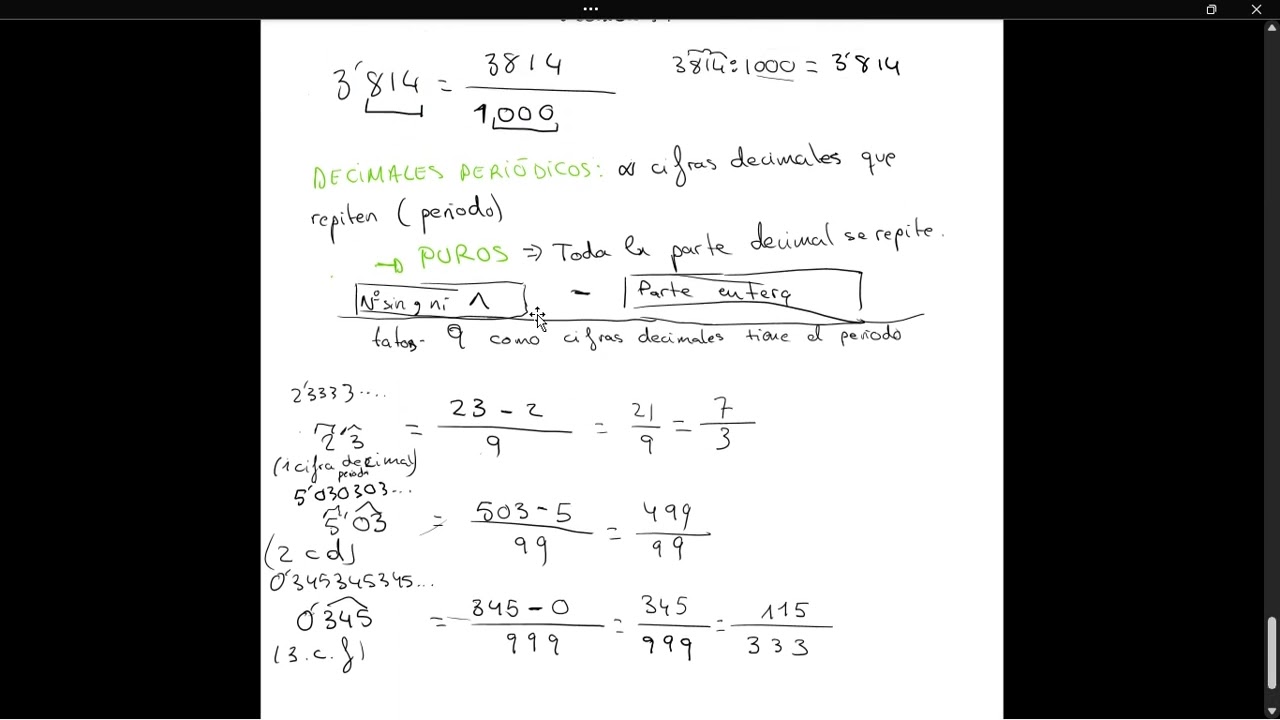 3'814 = 3814 / 1.000    3814:1000 = 3'814
DECIMALES PERIÓDICOS: ∞ cifras decimales que
repiten (periodo)
→ PUROS ⇒ Toda la parte decimal se repite.
Nº sin , ni ^ - Parte entera
tatos 9 como cifras decimales tiene el periodo
2'3333....
2'3 = 23 - 2 / 9 = 21 / 9 = 7 / 3
(1 cifra decimal)
periodo
5'030303...
5'03 = 503 - 5 / 99 = 499 / 99
(2 c d)
0'345345345...
0'345 = 345 - 0 / 999 = 345 / 999 = 115 / 333
(3.c.f)